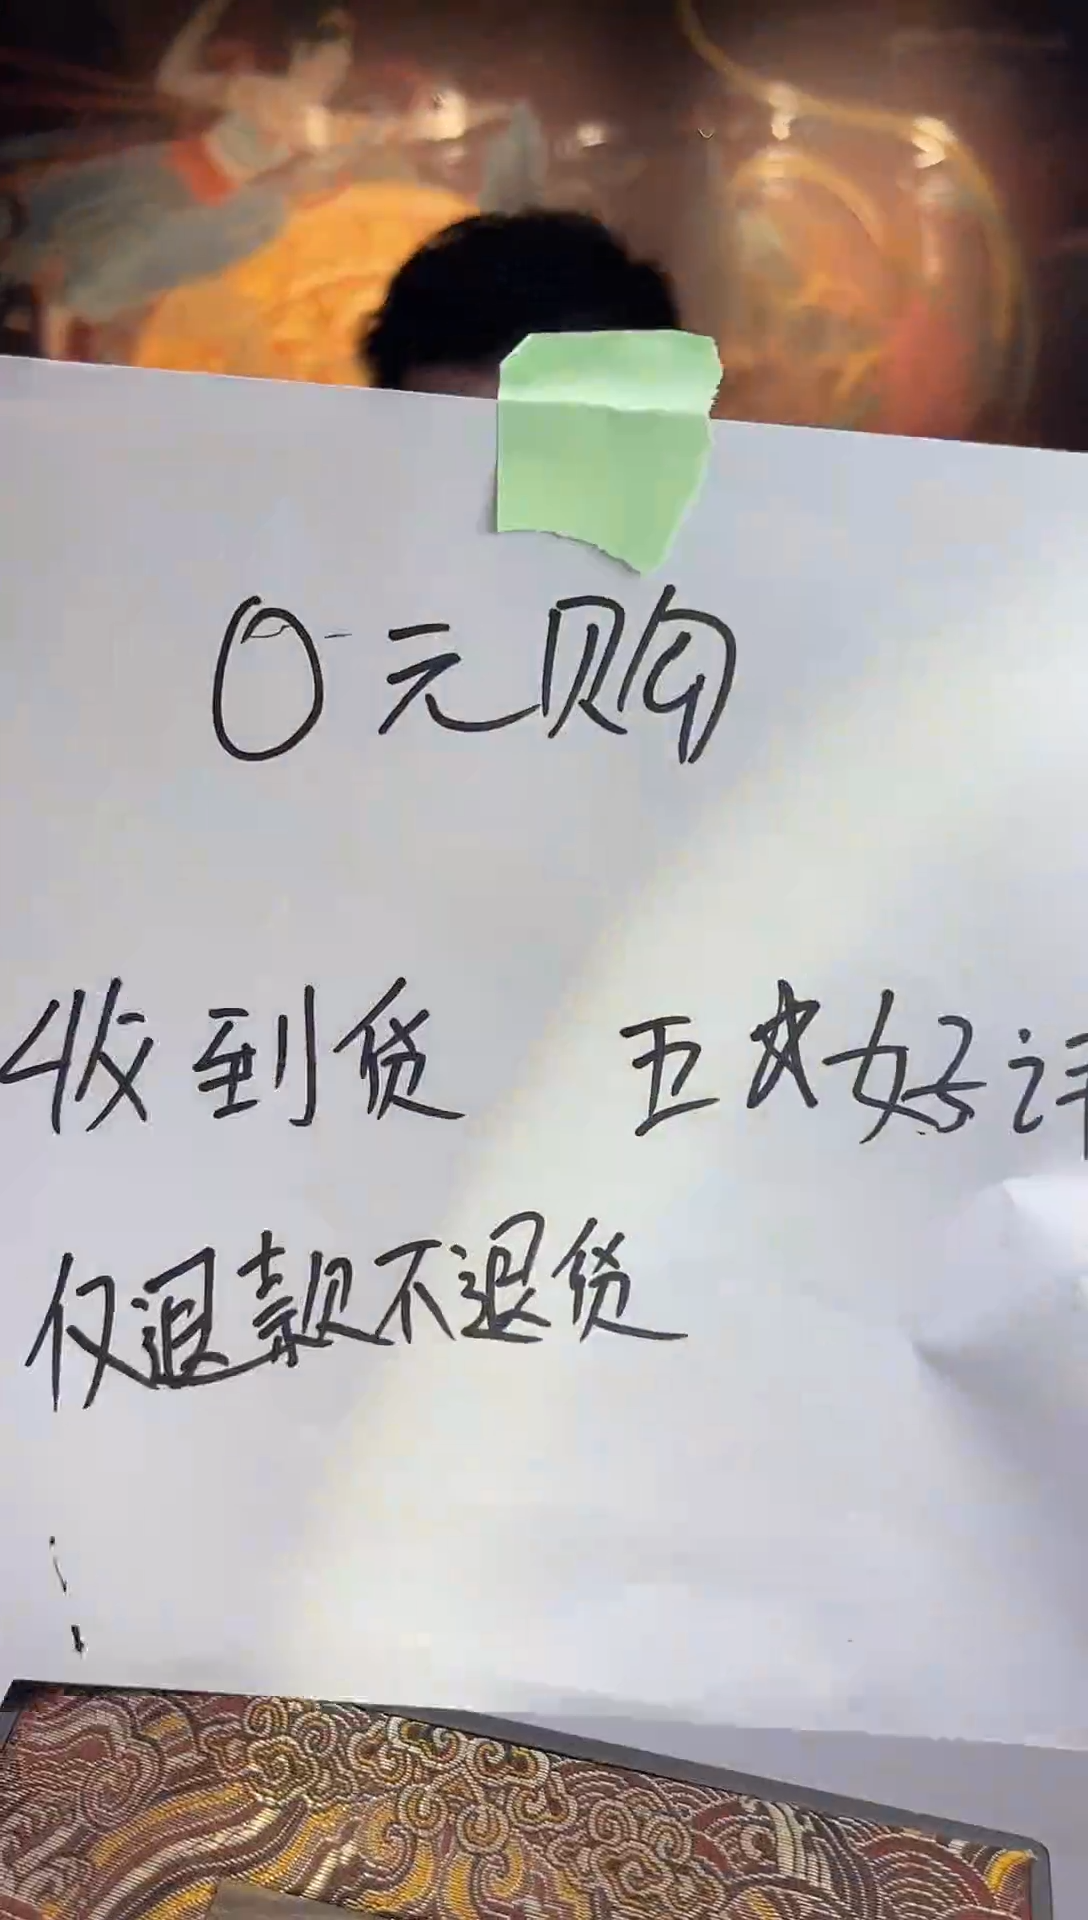 0元购
收到货 五星好评
仅退款不退货